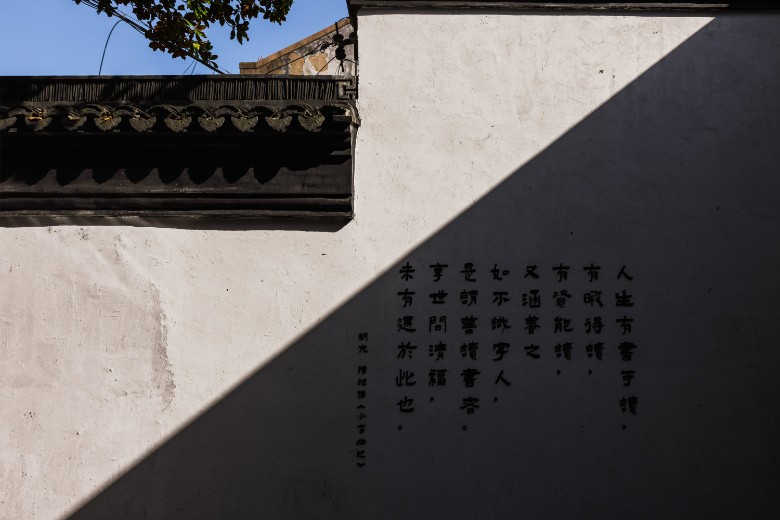 人生有書可讀,
有暇得讀,
有資能讀,
又涵養之
如不識字人,
是謂善讀書者。
享世間清福,
未有過於此也。
明代 陳繼儒《小窗幽記》